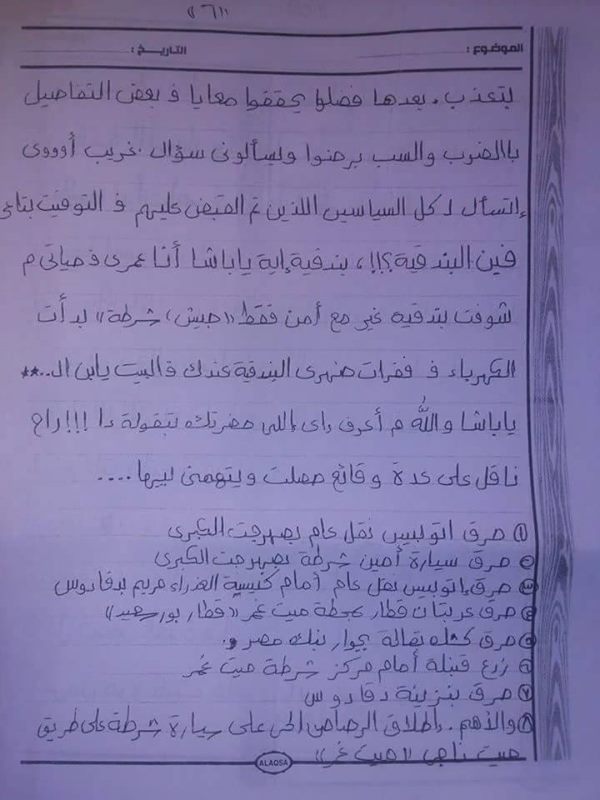 «٦»
الموضوع : التاريخ :
بتعذب . بعدها فضلوا يحققوا معايا ف بعض التفاصيل
بالضرب والسب برضوا ويسألونى سؤال غريب أوووى
إتسأل لكل السياسين اللذين تم القبض عليهم ف التوقيت بتاعى
فين البندقية؟!!، بندقية إية ياباشا أنا عمرى ف حياتى م
شوفت بندقية غير مع أمن فقط «جيش، شرطة» بدأت
الكهرباء ف فقرات ضهرى البندقية عندك ف البيت يابن الـ..**
ياباشا والله م أعرف داى إللى حضرتك بتقولة دا !!! راح
ناقل على كدة وقائع حصلت ويتهمنى بيها ....
① حرق اتوبيس نقل عام بصهرجت الكبرى
② حرق سيارة أمين شرطة بصهرجت الكبرى
③ حرق إتوبيس نقل عام أمام كنيسة العذراء مريم بدقادوس
④ حرق عربتان قطار بمحطة ميت غمر «قطار بورسعيد»
⑤ حرق كشك بقالة بجوار بنك مصر
⑥ زرع قنبلة أمام مركز شرطة ميت غمر
⑦ حرق بنزينة دقادوس
⑧ والأهم . إطلاق الرصاص الحى على سيارة شرطة على طريق
ميت ناجى «ميت غمر»
ALAQSA